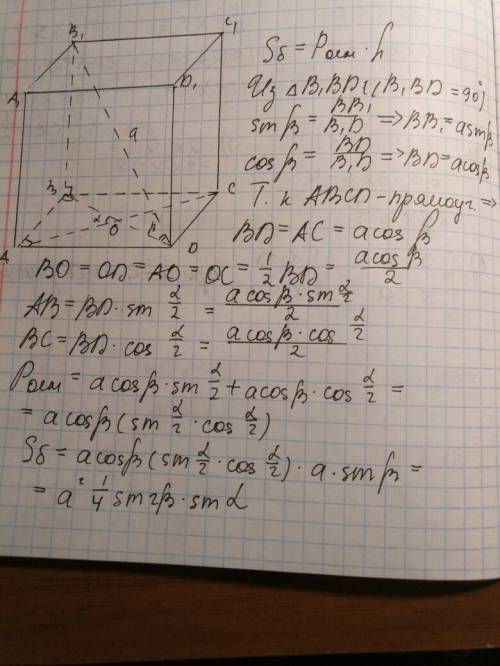 B₁ C₁
A₁ D₁
a
B C
α O β
A D
Sб = Pосн · h
Из △B₁BD: (∠B₁BD = 90°):
sinβ = BB₁/B₁D => BB₁ = a sinβ
cosβ = BD/B₁D => BD = a cosβ
Т. к ABCD - прямоуг. =>
BD = AC = a cos β
BO = OD = AO = OC = 1/2 BD = a cosβ/2
AB = BD · sin α/2 = a cosβ · sin α/2 / 2
BC = BD · cos α/2 = a cosβ · cos α/2 / 2
Pосн = a cosβ · sin α/2 + a cosβ · cos α/2 =
= a cosβ (sin α/2 · cos α/2)
Sб = a cosβ (sin α/2 · cos α/2) · a · sinβ =
= a² 1/4 sin2β · sin α